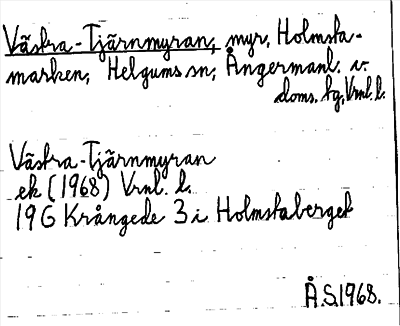 Västra-Tjärnmyran, myr, Holmsta-
marken, Helgums sn, Ångermanl. v.
doms. hg, Vrnl. l.
Västra-Tjärnmyran
ek (1968) Vrnl. l.
19G Krångede 3 i Holmstaberget
Å.S.1968.